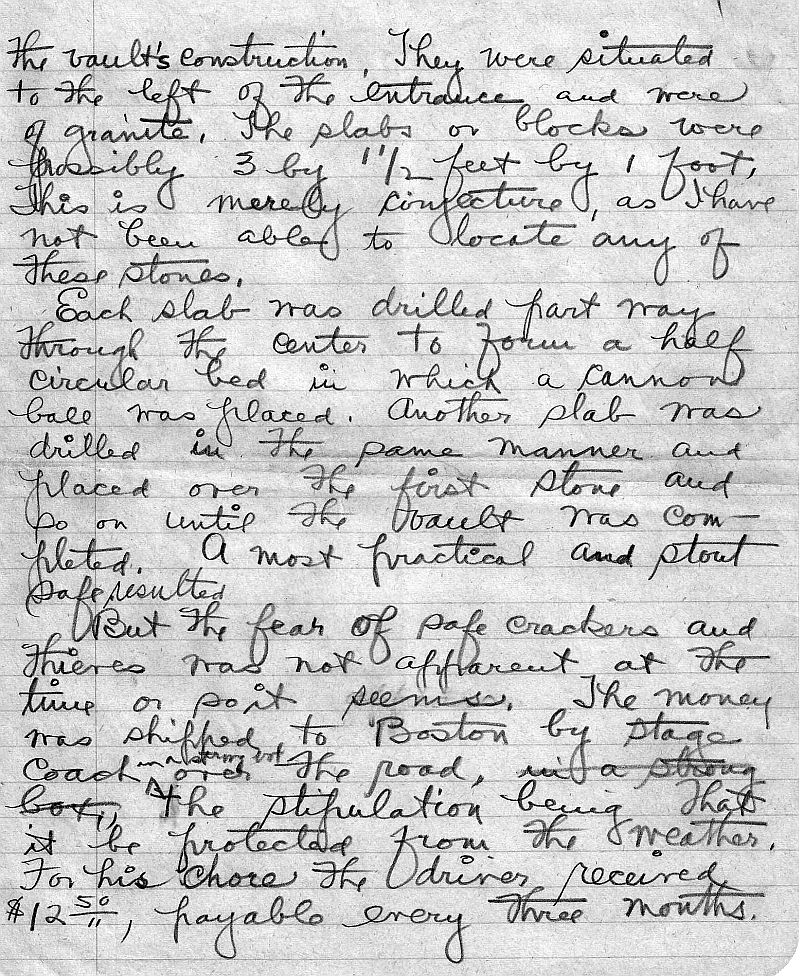 the vault's construction. They were situated
to the left of the entrance and were
of granite. The slabs or blocks were
possibly 3 by 1 1/2 feet by 1 foot.
This is merely conjecture, as I have
not been able to locate any of
these stones.
Each slab was drilled part way
through the center to form a half
circular bed in which a cannon
ball was placed. Another slab was
drilled in the same manner and
placed over the first stone and
so on until the vault was com-
pleted. A most practical and stout
safe resulted
But the fear of safe crackers and
thieves was not apparent at the
time or so it seems. The money
was shipped to Boston by stage
in a strong box
coach over the road, in a strong
box, the stipulation being that
it be protected from the weather.
For his chore the driver received
$12 50/", payable every three months.